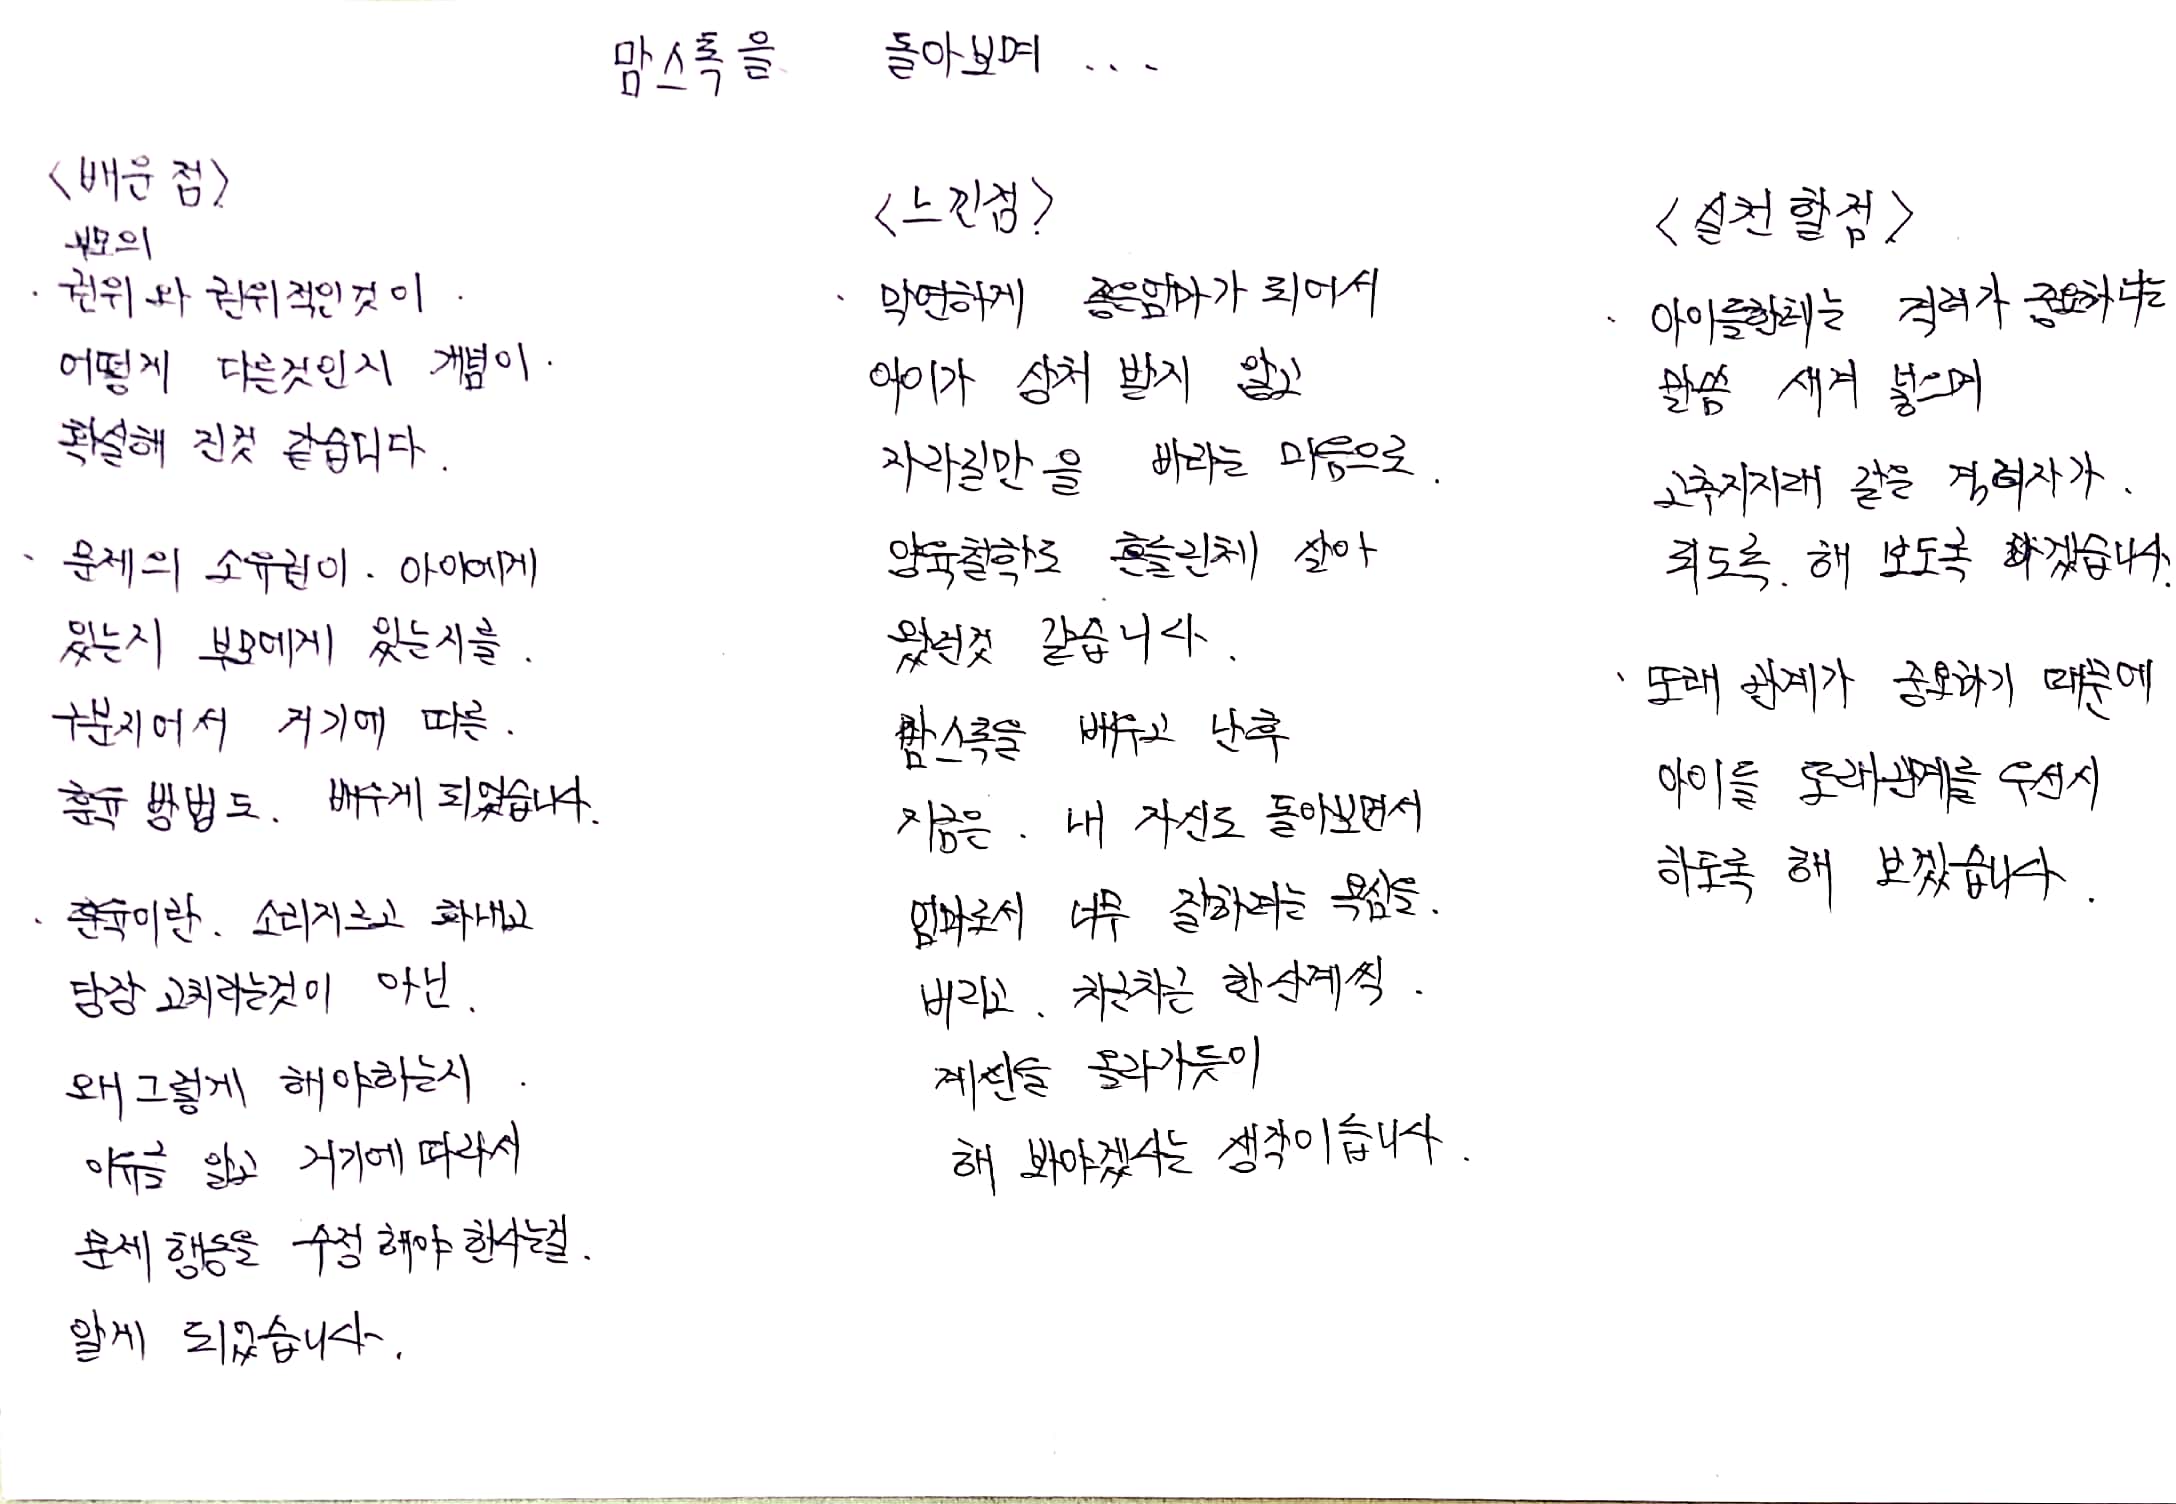 맘스톡을 돌아보며 ...
<배운 점>
부모의
· 권위와 권위적인것이.
어떻게 다른것인지 개념이.
확실해 진것 같습니다.
· 문제의 소유권이. 아이에게
있는지 부모에게 있는지를.
구분지어서 거기에 따른.
훈육 방법도. 배우게 되었습니다.
· 훈육이란. 소리지르고 화내고
당장 고치라는것이 아닌.
왜 그렇게 해야하는지.
이유를 알고 거기에 따라서
문제 행동을 수정 해야 한다는걸.
알게 되었습니다.
<느낀점>
· 막연하게 좋은엄마가 되어서
아이가 상처 받지 않고
자라길만을 바라는 마음으로.
양육철학도 흔들린체 살아
왔던것 같습니다.
맘스톡을 배우고 난후
지금은. 내 자신도 돌아보면서
엄마로서 너무 잘하려는 욕심을.
버리고. 차근차근 한단계씩.
계단을 올라가듯이
해 봐야겠다는 생각이듭니다.
<실천할점>
· 아이들한테는 격려가 중요하다는
말씀 새겨 넣으며
고추지지대 같은 격려자가.
되도록. 해 보도록 하겠습니다.
· 또래 관계가 중요하기 때문에
아이들 또래관계를 우선시
하도록 해 보겠습니다.